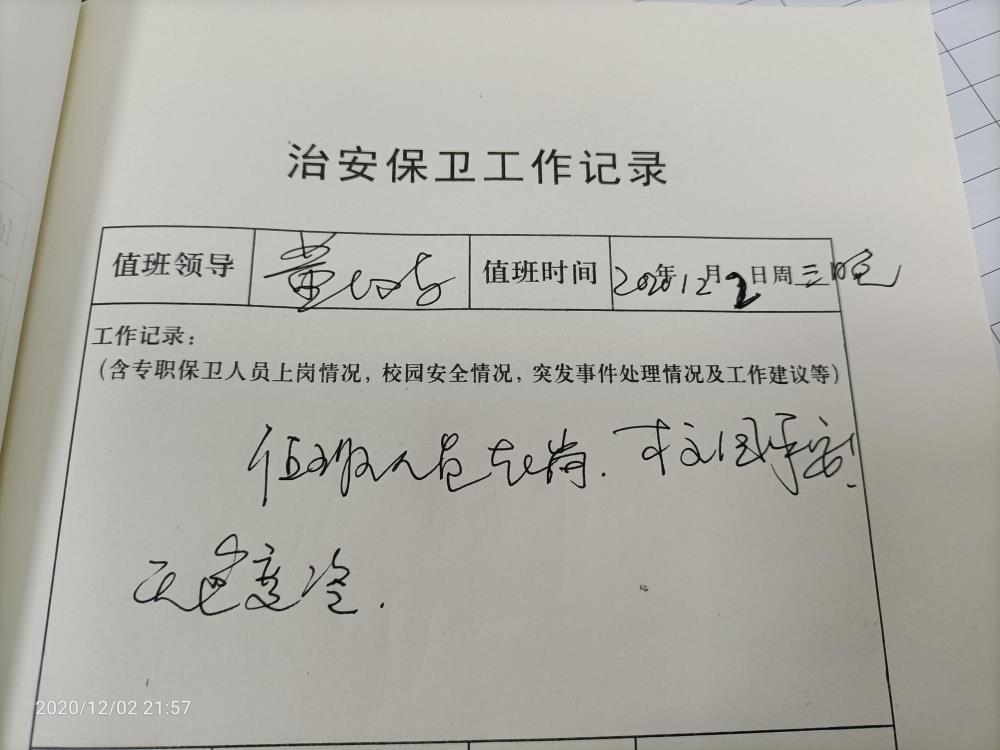 治安保卫工作记录
值班领导 黄 值班时间 2020年12月2日周三晚
工作记录：
（含专职保卫人员上岗情况，校园安全情况，突发事件处理情况及工作建议等）
值班人员在岗.校园平安!
天气变冷.
2020/12/02 21:57